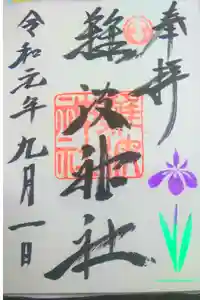 奉拝
難波神社
令和元年九月一日